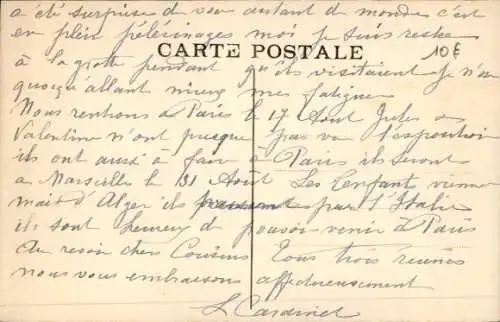 a été surprise de voir autant de monde c'est
en plein pélérinages moi je suis restée
CARTE POSTALE
10€
à la grotte pendant qu'ils visitaient je n'
quoiqu'allant mieux me fatiguer
Nous rentrons à Paris le 17 Août Jules &
Valentine n'ont presque pas vu l'exposition
ils ont aussi à faire à Paris ils seront
à Marseille le 31 Août Les Enfant
d'Alger ils passent par l'Italie
ils sont heureux de pouvoir venir à Paris
Au revoir chers Cousins Tous trois réunies
nous vous embrassons affectueusement
L Cardinet